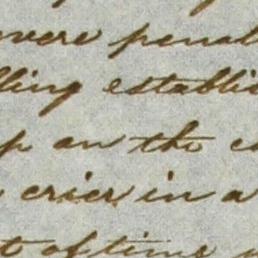 were penal
lling establis
p on the c
crier in a
t of time